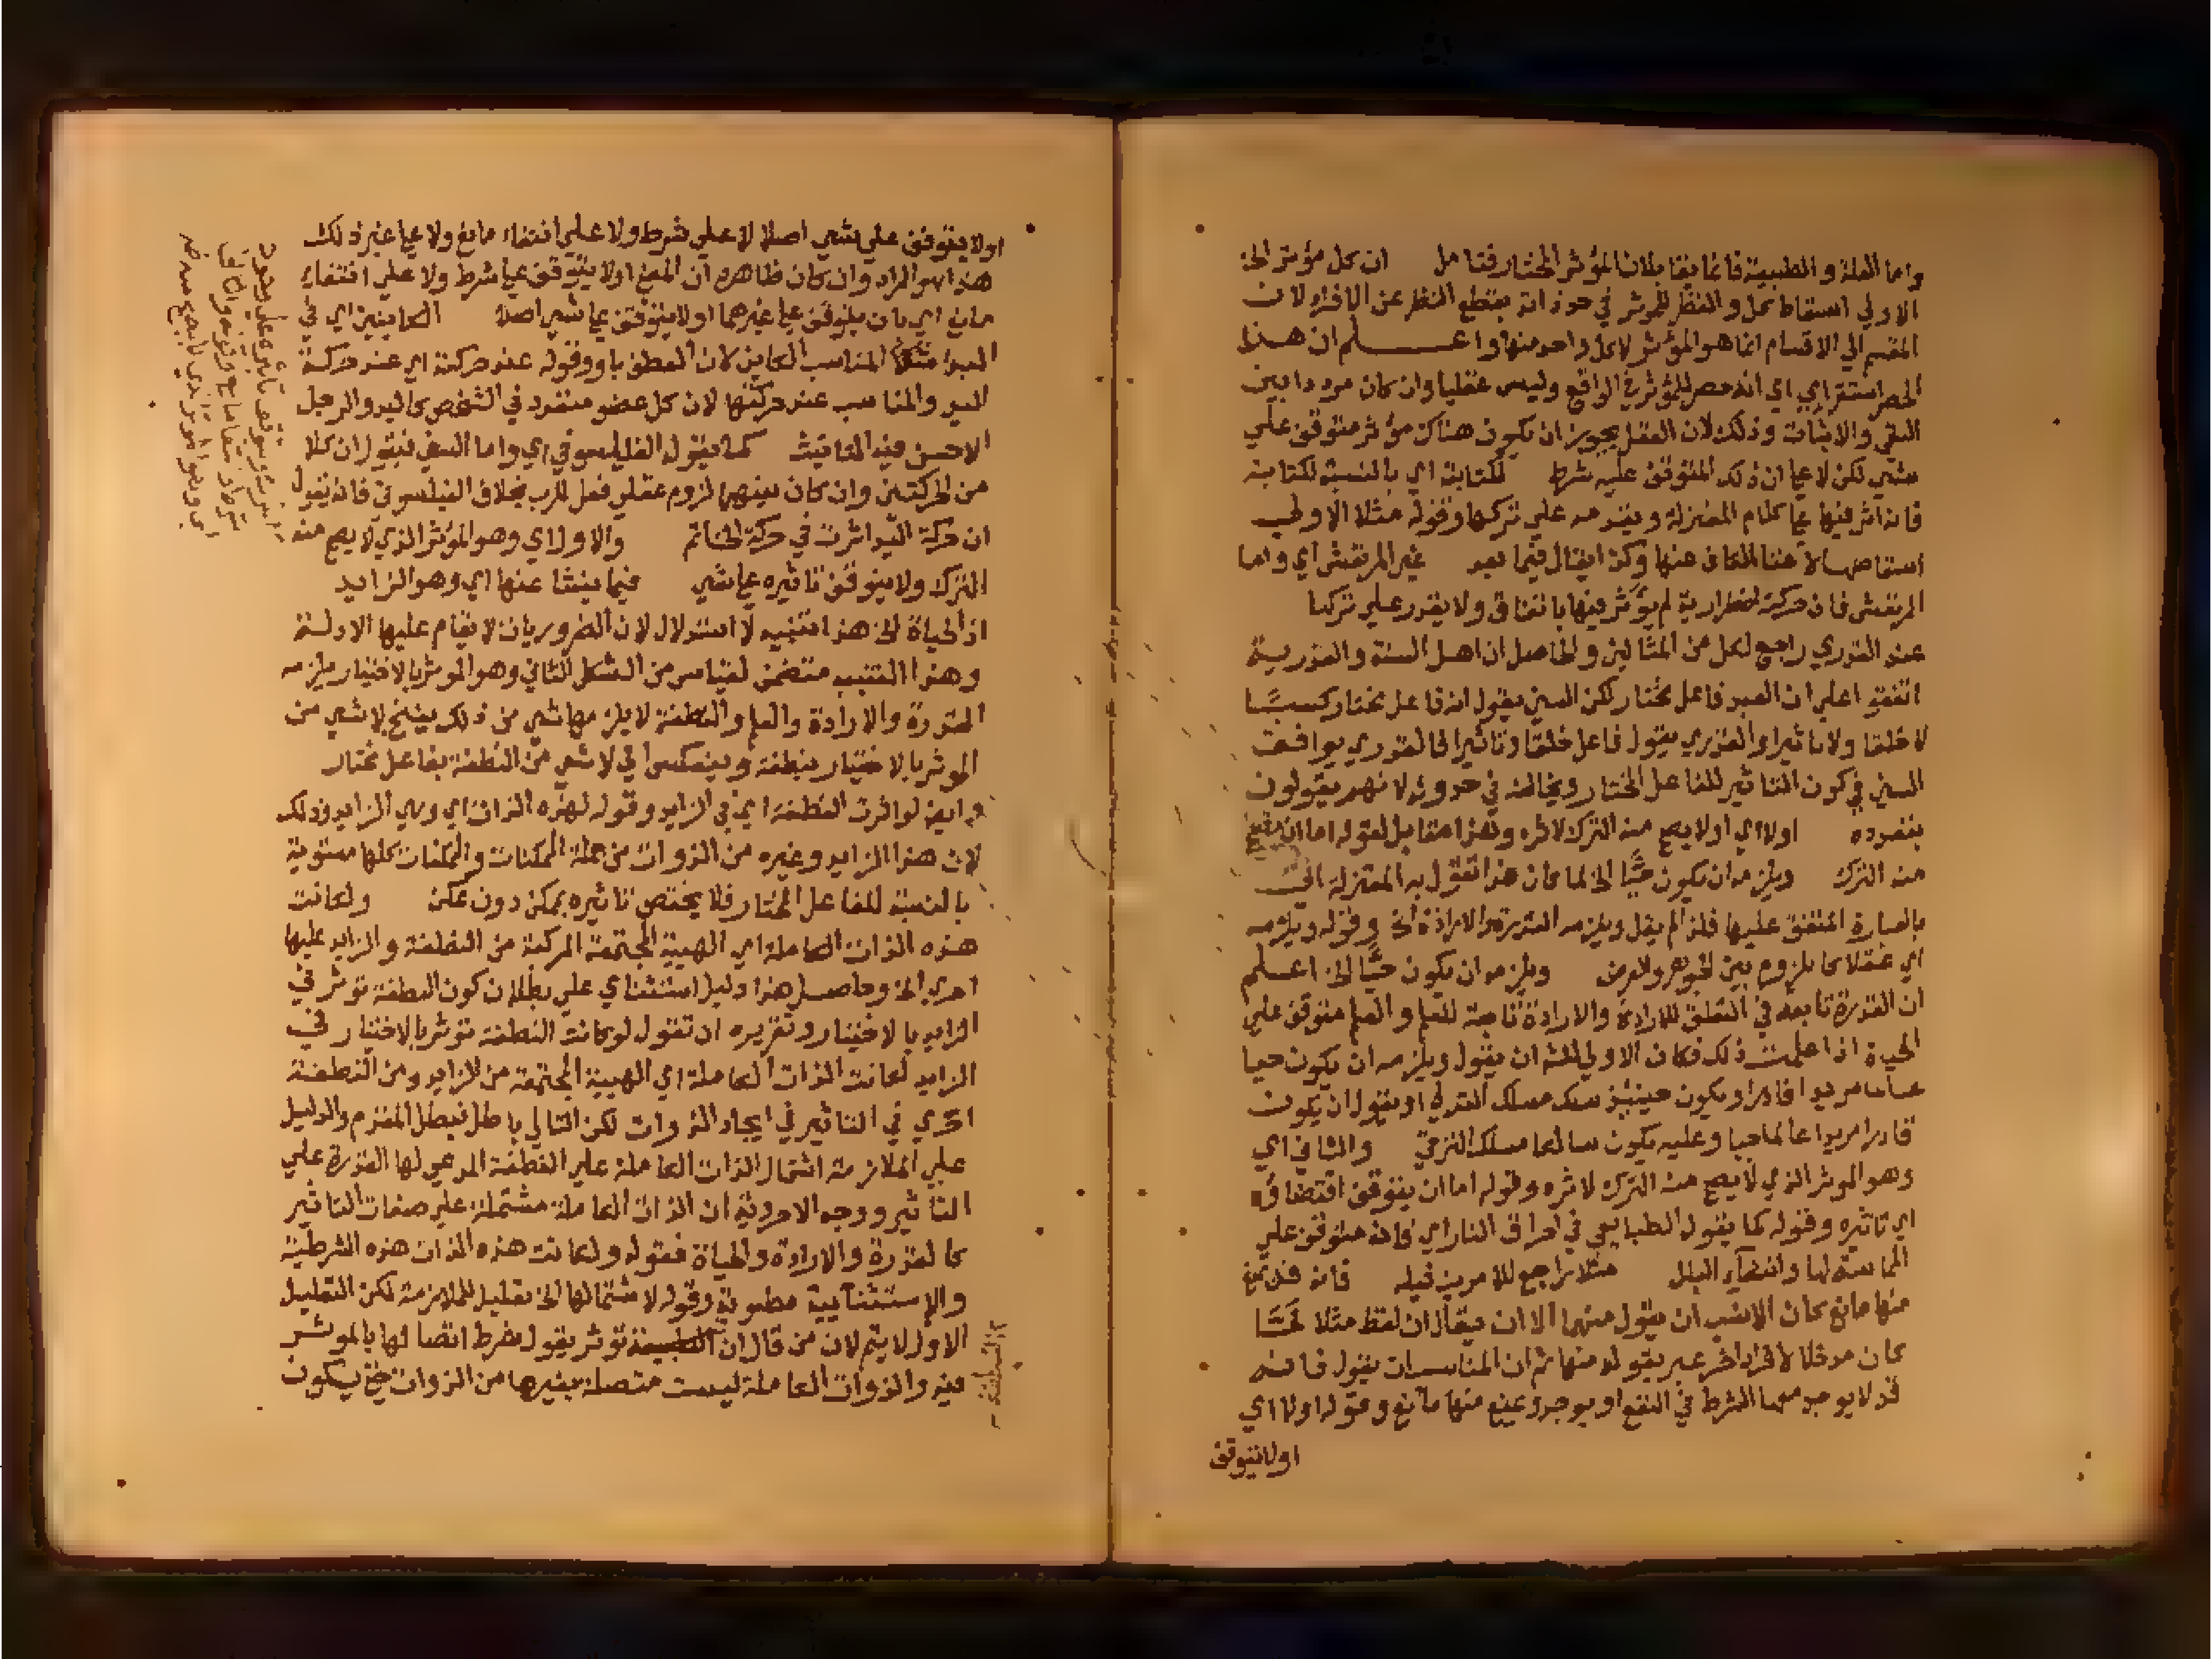 واما العلة والطبيعة فانما يقابلان المؤثر المختار فتامل ان كل مؤثر الخ
الاولي اسقاط كل والنظر للمؤثر في حد ذاته بقطع النظر عن الافراد لان
المقسم الي الاقسام انما هو المؤثر لا كل واحد منها واعلم ان هذا
الحصر استقراي اي انه حصر للمؤثر في الواقع وليس عقليا وان كان مرددا بين
النفي والاثبات وذلك لان العقل يجوز ان يكون هناك مؤثر متوقف علي
شي لكن لا علي ان ذلك المتوقف عليه شرط لكتابة اي بالنسبة لكتابة
فانه اثر فيها علي كلام المعتزلة ويقدر علي تركها وقوله مثلا الاولي
اسقاطها لاغنا الكاف عنها وكذا يقال فيما بعد غير المرتعش اي واما
المرتعش فان حركته اضطرارية لم يؤثر فيها باتفاق ولا يقدر علي تركها
عند القدري راجع لكل من المثالين والحاصل ان اهل السنة والقدرية
اتفقوا علي ان العبد فاعل مختار لكن السني يقول انه فاعل مختار كسبا
لا خلقا ولا تاثيرا والقدري يقول فاعل خلقا وتاثيرا فالقدري يوافق
السني في كون التاثير للفاعل المختار ويخالفه في حدوثه لانهم يقولون
بتفرده اولا اي اولا يصح منه الترك لاثره وهذا مقابل لقوله اما ان يصح
منه الترك ويلزمه ان يكون حيا الخ لما كان هذا تقول به المعتزلة اتي
بالعبارة المتفق عليها فلذا لم يقل ويلزمه القدرة والارادة الخ وقوله ويلزمه
اي عقلا كما يلزم بين الجوهر والعرض ويلزمه ان يكون حيا الخ اعلم
ان القدرة تابعة في التعلق للارادة والارادة تابعة للعلم والعلم متوقف علي
الحياة اذا علمت ذلك فكان الاولي للش ان يقول ويلزمه ان يكون حيا
عالما مريدا قادرا ويكون حينئذ سلك مسلك التدلي او يقول ان يكون
قادرا مريدا عالما حيا وعليه يكون سالكا مسلك الترقي والثاني اي
وهو المؤثر الذي لا يصح منه الترك لاثره وقوله اما ان يتوقف اقتضاؤه
اي تاثيره وقوله كما يقول الطبايعي في احراق النار اي فانه متوقف علي
المماسة لها وانتفاء البلل مثلا راجع للامرين قبله فانه قد يمنع
منها مانع كان الانسب ان يقول منهما الا ان يقال ان لفظ مثلا لما
كان مدخلا لافراد اخر عبر بقوله منها ثم ان المناسب ان يقول فانه
قد لا يوجد معها الشرط في النفع او يوجد ويمنع منها مانع وقوله اولا اي
اولا يتوقف
اولا يتوقف علي شي اصلا لا علي شرط ولا علي انتفاء مانع ولا علي غير ذلك
هذا هو المراد وان كان ظاهره ان المعني اولا يتوقف علي شرط ولا علي انتفاء
مانع اي بان يتوقف علي غيرهما اولا يتوقف علي شي اصلا الكاينين اي في
اليد مثلا المناسب الكاين لان العطف باو وقوله عند حركته اي عند حركة
اليد والمناسب عند حركتها لان كل عضو منفرد في الشخص كاليد والرجل
الاحسن فيه التانيث كما يقول الفيلسوفي اي واما السني فيقول ان كلا
من الحركتين وان كان بينهما لزوم عقلي فعل للرب بخلاف الفيلسوفي فانه يقول
ان حركة اليد اثرت في حركة الخاتم والاول اي وهو المؤثر الذي لا يصح منه
الترك ولا يتوقف تاثيره علي شي فيما ينشا عنها اي وهو الزايد
اذ الحياة الخ هذا تنبيه لا استدلال لان الضروريات لا يقام عليها الادلة
وهذا التنبيه متضمن لقياس من الشكل الثاني وهو المؤثر بالاختيار يلزمه
القدرة والارادة والعلم والنطفة لا يلزمها شي من ذلك ينتج لا شي من
المؤثر بالاختيار بنطفة وينعكس الي لا شي من النطفة بفاعل مختار
وايضا لو اثرت النطفة اي في الزايد وقوله لهذه الذات اي وهي الزايد وذلك
لان هذا الزايد وغيره من الذوات من جملة الممكنات والممكنات كلها مستوية
بالنسبة للفاعل المختار فلا يختص تاثيره بممكن دون ممكن ولكانت
هذه الذات الكاملة اي الهيية المجتمعة المركبة من النطفة والزايد عليها
احري الخ وحاصل هذا دليل استثناي علي بطلان كون النطفة تؤثر في
الزايد بالاختيار وتقريره ان تقول لو كانت النطفة تؤثر بالاختيار في
الزايد لكانت الذات الكاملة اي الهيية المجتمعة من الزايد ومن النطفة
احري في التاثير في ايجاد الذوات لكن التالي باطل فبطل المقدم والدليل
علي الملازمة اشتمال الذات الكاملة علي النطفة المدعي لها القدرة علي
التاثير ووجه الاحروية ان الذات الكاملة مشتملة علي صفات التاثير
كالقدرة والارادة والحياة فقوله ولكانت هذه الذات هذه الشرطية
والاستثنايية مطوية وقوله لاشتمالها الخ تعليل للملازمة لكن التعليل
الاول لا يتم لان من قال ان الطبيعة تؤثر يقول بشرط اتصالها بالمؤثر
فيه والذوات الكاملة ليست متصلة بغيرها من الذوات حتي يكون